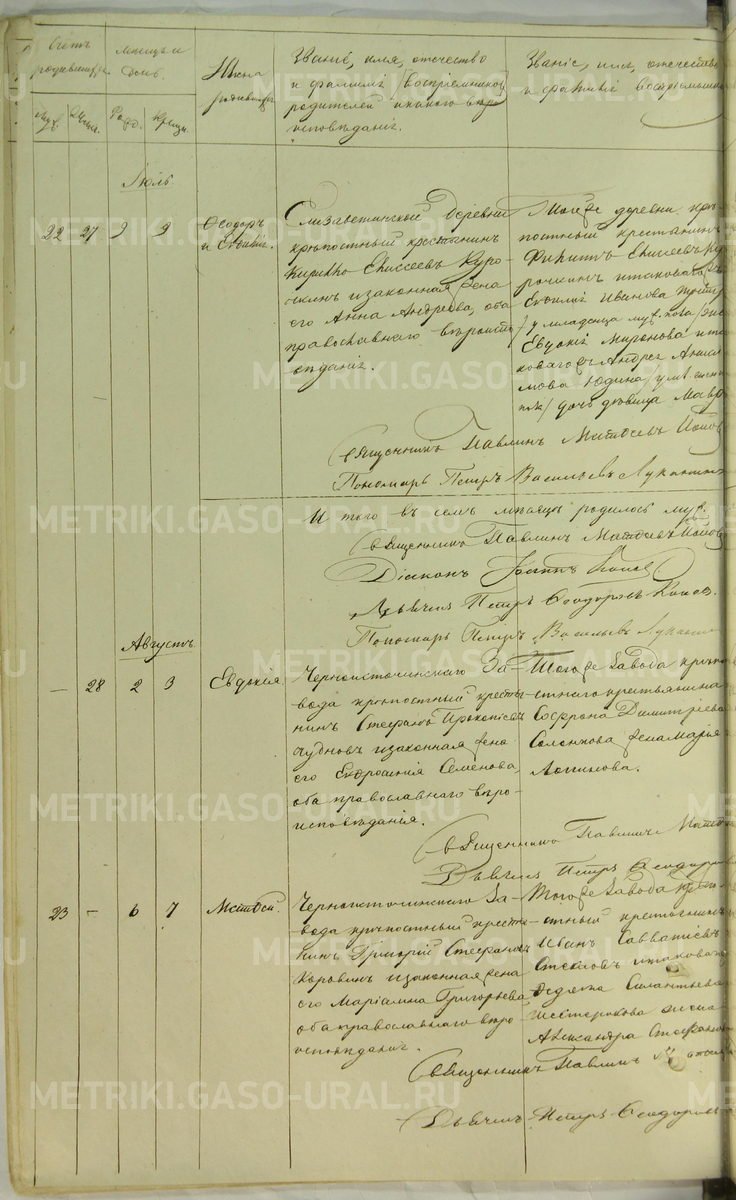 Счетъ
родившихся
Муж.
Жен.
Мѣсяцъ и
день.
Рожд.
Крещ.
Имена
родившихся
Званіе, имя, отечество
и фамиліи
родителей и какого вѣро-
исповѣданія.
Званіе, имя, отечество
и фамилія воспріемников
Іюль
22 27 9 9
Ѳеодоръ
и Евѳимія.
Елизаветинской деревни
крѣпостный крестьянинъ
Елисеевъ Куро-
чкинъ и законная жена
его Анна Андреева, оба
православнаго вѣроиспо-
вѣданія.
Тойже деревни крѣ-
постный крестьянинъ
Елисеевъ Ку-
рочкинъ и таковаго ж
Иванова
/ у младенца муж. пола /
Евдокія Миронова и та-
коваго ж Андрея
Юдина / у
пола / дочь дѣвица
Священникъ Павлинъ Матвѣевъ Поповъ
Пономарь Петръ Васильевъ
Итого въ семъ мѣсяцѣ родилось муж.
Священникъ Павлинъ Матвѣевъ Поповъ
Діаконъ Поповъ
Дьячекъ Петръ Ѳеодоровъ Поповъ.
Пономарь Петръ Васильевъ
Августъ.
— 28 2 3
Евдокія
Черноисточинскаго За-
вода крѣпостный кресть-
янинъ Стефанъ Прокопіевъ
Чудновъ и законная жена
его Евфросинія Семенова,
оба православнаго вѣро-
исповѣданія.
Тогоже Завода крѣпо-
стнаго крестьянина
Софрона Димитріева
жена Марія
Логинова.
Священникъ Павлинъ Матв
Дьячекъ Петръ Ѳеодоровъ
23 — 6 7
Матвей.
Черноисточинскаго За-
вода крѣпостный кресть-
нинъ Григорій Стефановъ
Коровинъ и законная жена
его Маріамна Григорьева,
оба православнаго вѣро-
исповѣданія.
Тогоже Завода крѣпо-
стный крестьянинъ
Иванъ Савватіевъ
и таковаго
Силантьева
жена
Александра Стефанова
Священникъ Павлинъ
Дьячекъ Петръ Ѳеодоровъ
METRIKI.GASO-URAL.RU